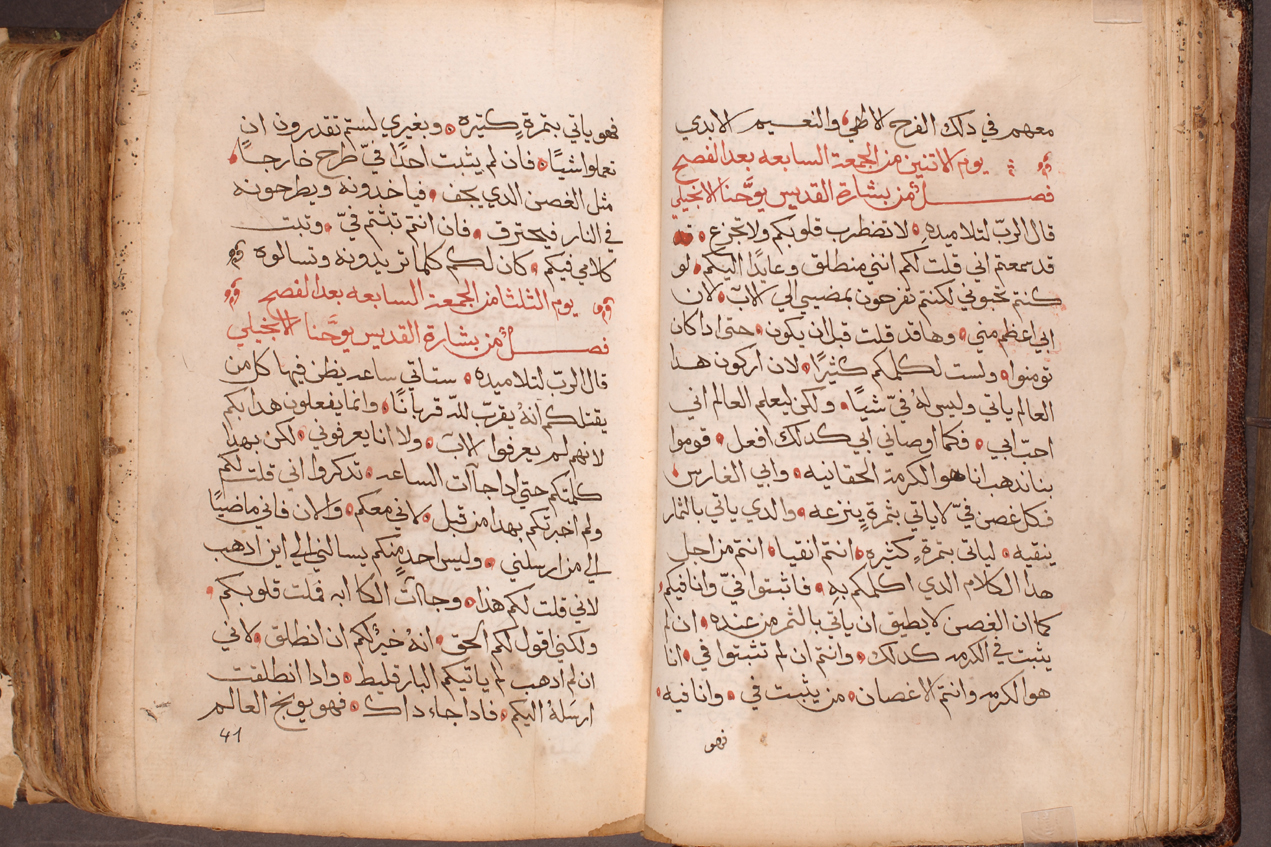 معهم في دلك الفرح الالهي والنعيم الابدي
يوم الاتنين من الجمعه السابعه بعد الفصح
فصل من بشارة القديس يوحَّنا الانجيلي
قال الربّ لتلاميده لا تضطرب قلوبكم ولا تجزع
قد سمعتم اني قلت لكم انني منطلق وعايدًا اليكم لو
كنتم تحبوني لكنتم تفرحون بمضيي الي الاب لان
ابي اعظم مني وها قد قلت قبل ان يكون حتى ادا كان
تومنوا ولست اكلمكم كثيرًا لان اركون هدا
العالم ياتي وليس لهُ فيّ شيًا ولكن ليعلم العالم اني
احب ابي فكما اوصاني ابي كدلك افعل قوموا
بنا ندهب انا هو الكرمة الحقانيه وابي الغارس
فكل غصن فيّ لا ياتي بثمرةٍ ينزعه والدي ياتي بالثمار
ينقيه لياتي بثمرةٍ كثيره انتم انقيا انتم من اجل
هدا الكلام الدي اكلمكم بهِ فاثبتوا فيّ وانا فيكم
كما ان الغصن لا يطيق ان ياتي بالثمر من عنده ان لم
يثبت في الكرمه كدلك وانتم ان لم تثبتوا في انا
هو الكرمه وانتم الاغصان من يثبت فيّ وانا فيه
فهو
فهو ياتي بثمرةٍ كثيره وبغيري لستم تقدرون ان
تعملوا شيًا فان لم يثبت احدًا فيّ طرح خارجًا
مثل الغصن الدي يجف فياخدونه ويطرحونه
في النار فيحترق فان انتم تبثتم فيّ وتبت
كلامي فيكم كان لكم كلما تريدونه وتسالوه
يوم التلثا من الجمعة السابعه بعد الفصح
فصل من بشارة القديس يوحَّنا الانجيلي
قال الربّ لتلاميده ستاتي ساعه يظن فيها كل من
يقتلكم انهُ يقرب لله قربانًا وانما يفعلون هدا بكم
لانهم لم يعرفوا الاب ولا انا يعرفوني لكن بهدا
كلمتكم حتي ادا جاات الساعه تدكروا اني قلت لكم
ولم اخبرتكم بهدا من قبل لاني معكم والان فاني ماضيًا
الي من ارسلني وليس احدٍ منكم يسالني الي اين ادهب
لاني قلت لكم هذا وجاات الكاابه فملت قلوبكم
ولكني اقول لكم الحق انهُ خيرٌ لكم ان انطلق لاني
ان لم ادهب لم ياتيكم البارقليط وادا انطلقت
ارسلهُ اليكم فادا جاء داك فهو يوبخ العالم
41